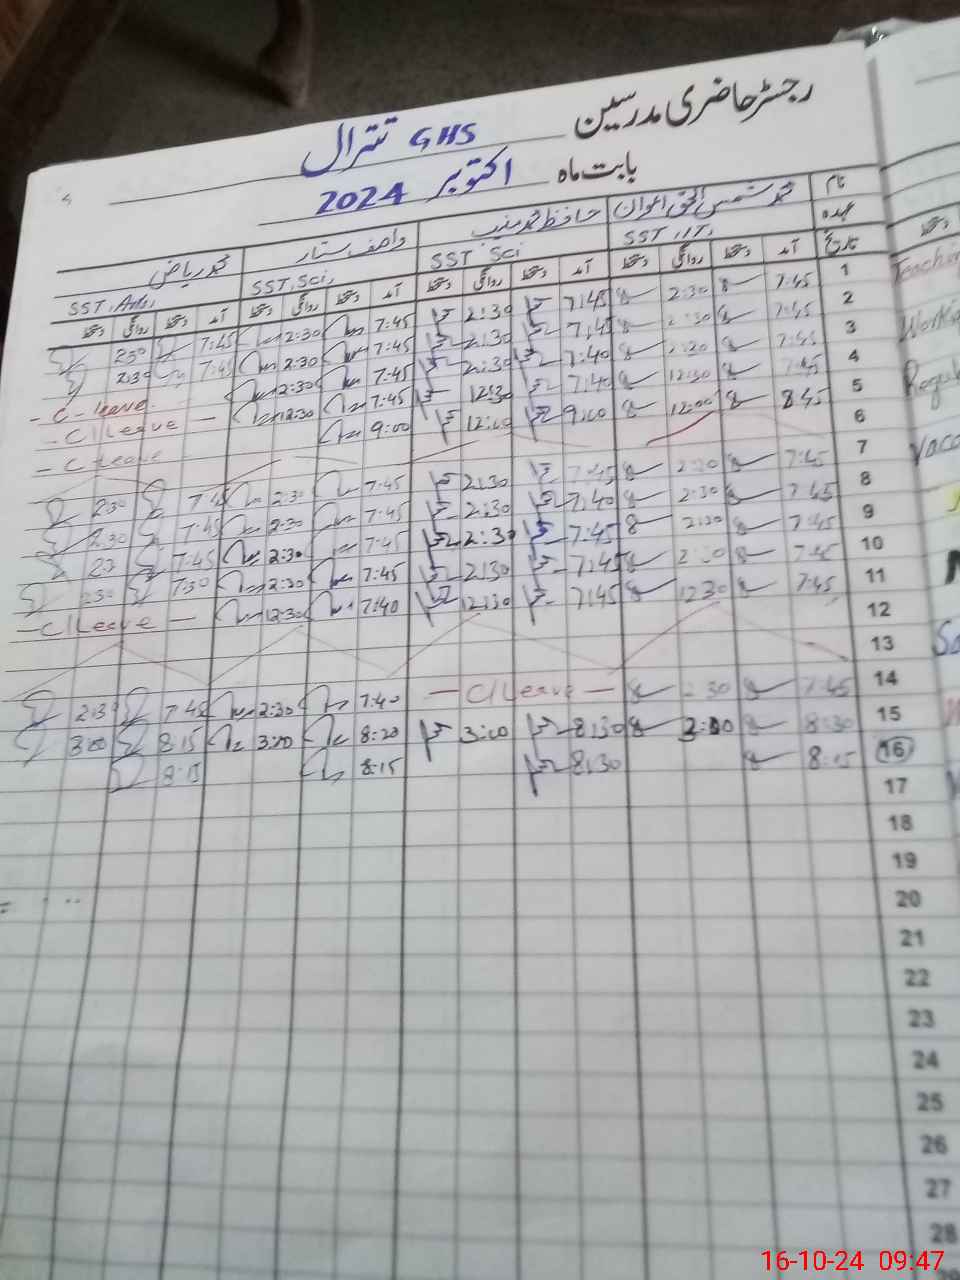 رجسٹر حاضری مدرسین GHS تترال
بابت ماہ اکتوبر 2024
نام محمد شمس الحق اعوان حافظ محمد منیب واصف ستار محمد ریاض
عہدہ SST, IT, SST Sci SST, Sci, SST, Arts,
تاریخ آمد دستخط روانگی دستخط آمد دستخط روانگی دستخط آمد دستخط روانگی دستخط آمد دستخط روانگی دستخط
1 7:45 2:30 7:45 2:30 7:45 2:30 7:45 2:30
2 7:45 2:30 7:45 2:30 7:45 2:30 7:45 2:30
3 7:45 2:30 7:40 2:30 7:45 2:30 C-leave
4 7:45 12:30 7:40 12:30 7:45 12:30 C/Leave
5 8:45 12:00 9:00 12:00 9:00 C Leave
6
7 7:45 2:30 7:45 2:30 7:45 2:30 7:45 2:30
8 7:45 2:30 7:40 2:30 7:45 2:30 7:45 2:30
9 7:45 2:30 7:45 2:30 7:45 2:30 7:45 2:30
10 7:45 2:30 7:45 2:30 7:45 2:30 7:30 2:30
11 7:45 12:30 7:45 12:30 7:40 12:30 C/Leave
12
13
14 7:45 2:30 C/Leave 7:40 2:30 7:45 2:30
15 8:30 3:00 8:30 3:00 8:20 3:00 8:15 3:00
16 8:15 8:30 8:15 8:15
17
18
19
20
21
22
23
24
25
26
27
28
16-10-24 09:47